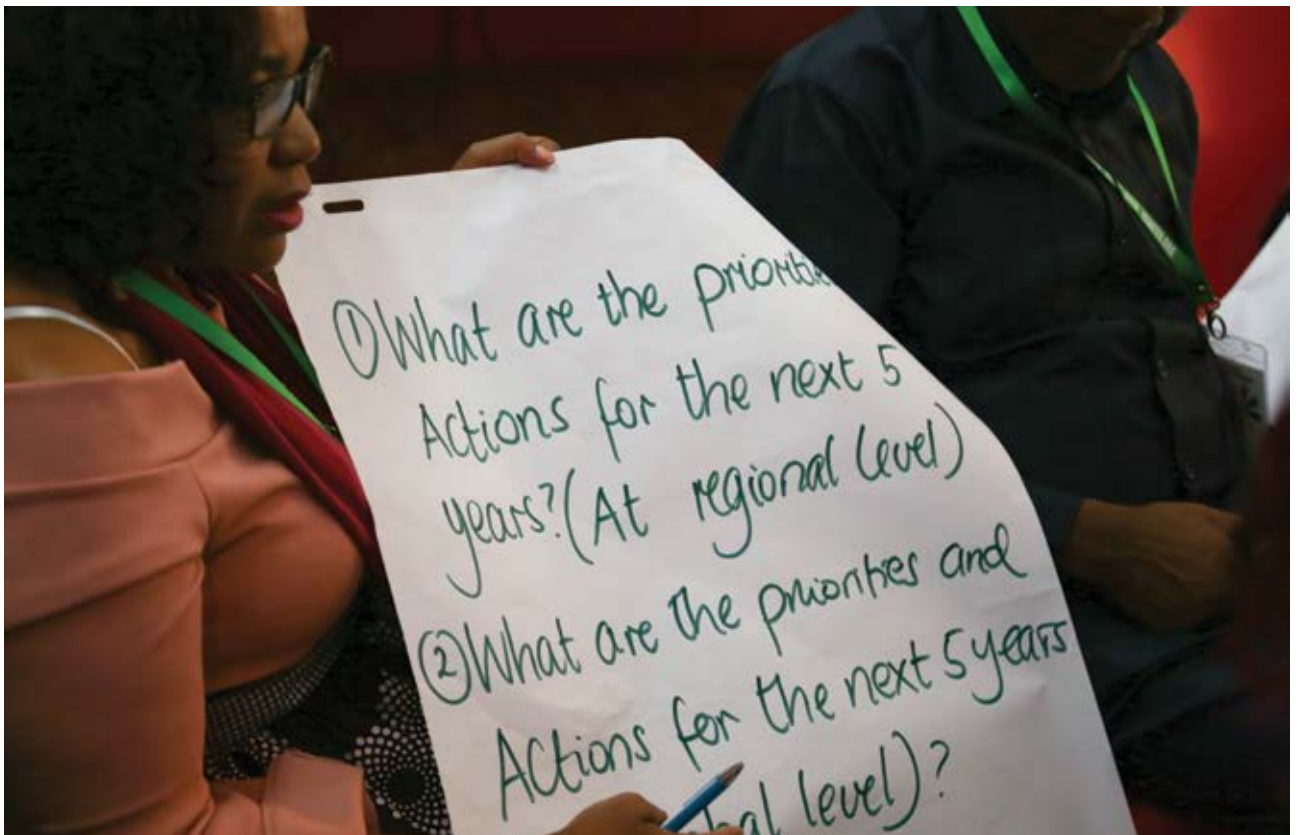 ① What are the
Actions for the next 5
years? (At regional level)
② What are the priorities and
Actions for the next 5 years
level)?